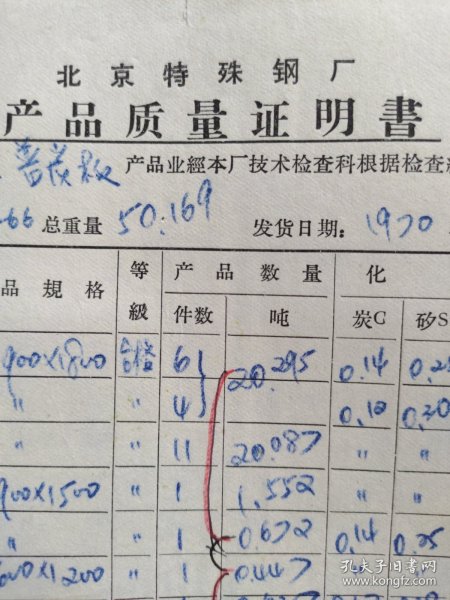 北京特殊钢厂
产品质量证明書
产品业經本厂技术检查科根据检查
66 总重量 50.169 发货日期: 1970
品規格 等級 产品数量 化
件数 吨 炭C 矽S
900×1800 合格 6 20.295 0.14 0.2
" " 4 0.10 0.30
" " 11 20.087 " "
900×1500 " 1 1.552 " "
" " 1 0.672 0.14 0.25
600×1200 " 1 0.447 " "
孔夫子旧书网